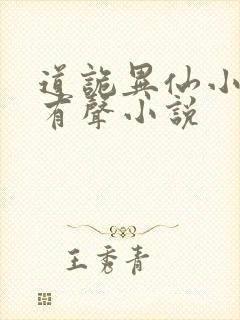 道詭異仙小
有聲小説
王秀青